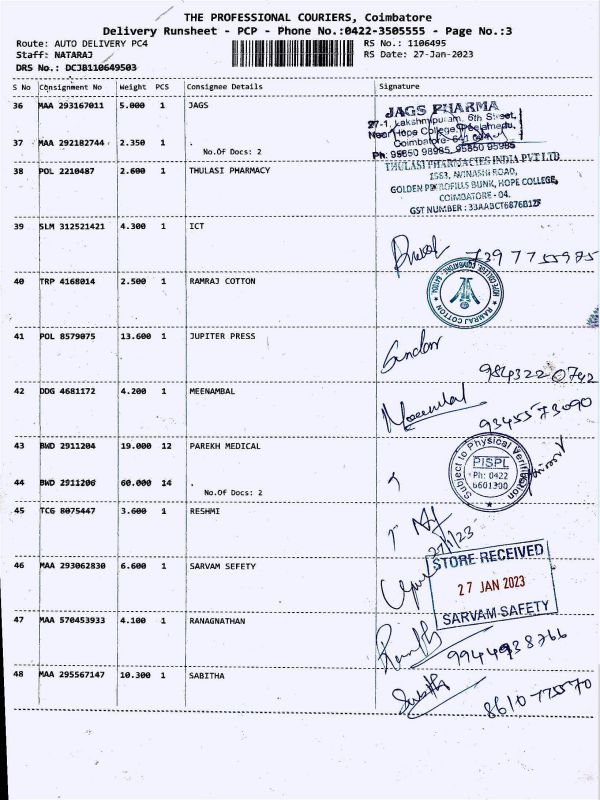 THE PROFESSIONAL COURIERS, Coimbatore
Delivery Runsheet - PCP - Phone No.:0422-3505555 - Page No.:3
Route: AUTO DELIVERY PC4
RS No.: 1106495
Staff: NATARAJ
RS Date: 27-Jan-2023
DRS No.: DCJB110649503
S No Consignment No Weight PCS Consignee Details Signature
36 MAA 293167011 5.000 1 JAGS
JAGS PHARMA
27-1, Lakshmipuram, 6th Street,
Near Hope College, Peelamedu,
37 MAA 292182744 2.350 1 .
Coimbatore-641 004
No.Of Docs: 2
Ph: 95850 98985, 95850 95985
38 POL 2210487 2.600 1 THULASI PHARMACY
THULASI PHARMACIES INDIA PVT LTD
1583, AVINASHI ROAD,
GOLDEN PETROFILLS BUNK, HOPE COLLEGE,
COIMBATORE - 04.
GST NUMBER : 33AABCT6876B1ZF
39 SLM 312521421 4.300 1 ICT
40 TRP 4168014 2.500 1 RAMRAJ COTTON
RAMRAJ COTTON
41 POL 8579075 13.600 1 JUPITER PRESS
Sundar
9843220742
42 DDG 4681172 4.200 1 MEENAMBAL
Meenambal
9345573090
43 BWD 2911204 19.000 12 PAREKH MEDICAL
Subject to Physical Verification
PISPL
Ph: 0422
6601300
44 BWD 2911206 60.000 14 .
No.Of Docs: 2
45 TCG 8075447 3.600 1 RESHMI
27/1/23
46 MAA 293062830 6.600 1 SARVAM SEFETY
STORE RECEIVED
27 JAN 2023
SARVAM SAFETY
47 MAA 570453933 4.100 1 RANAGNATHAN
9944938766
48 MAA 295567147 10.300 1 SABITHA
Sabitha
8610775570